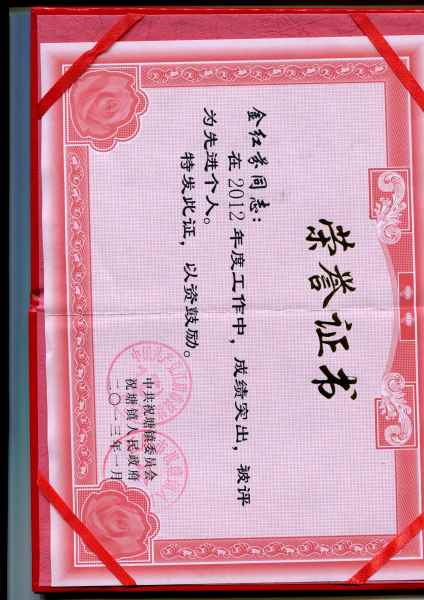 荣誉证书
金红芬同志：
在2012年度工作中，成绩突出，被评
为先进个人。
特发此证，以资鼓励。
中共祝塘镇委员会
祝塘镇人民政府
二〇一三年一月